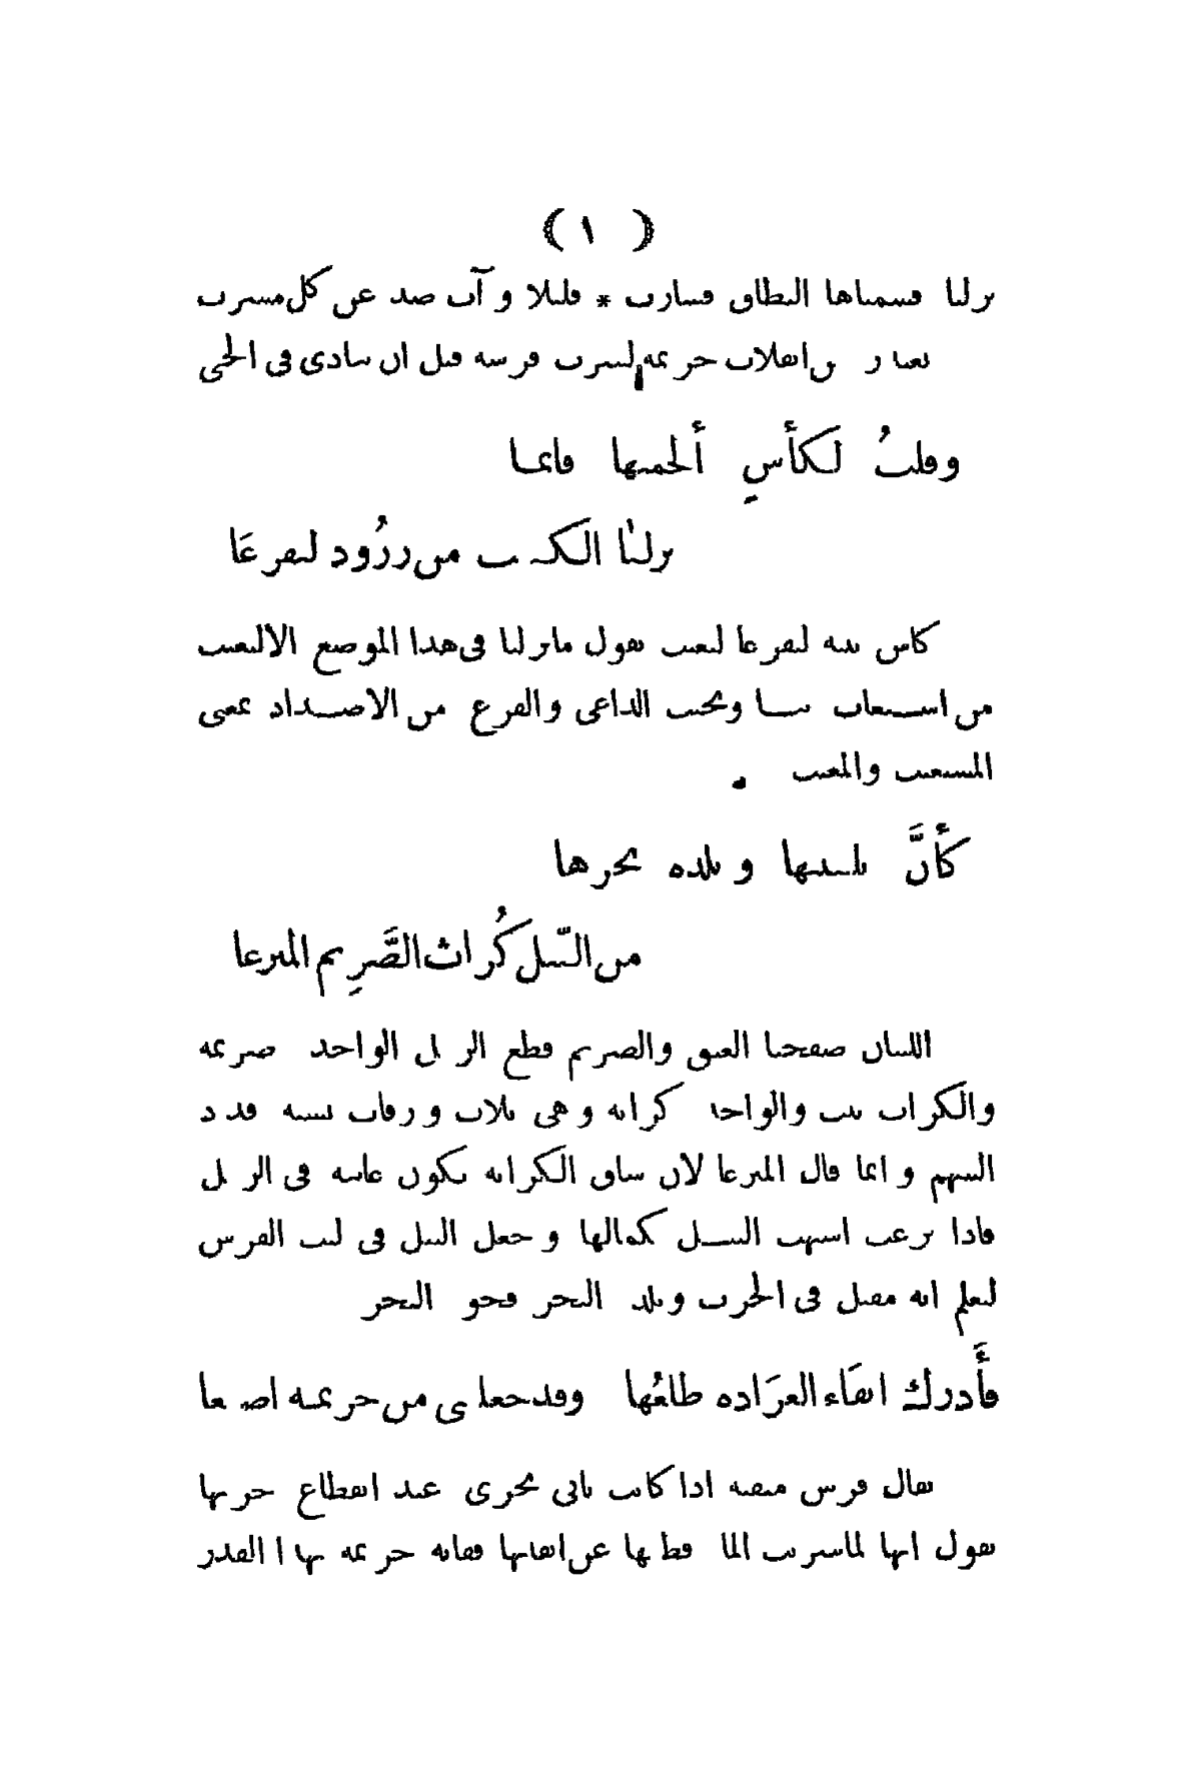 ( ١ )
نزلنا قسمناها النطاف فشارب * قليلا وآب صد عن كل مشرب
انفلات حزيمة لشرب فرسه قبل ان ينادى فى الحى
وقلتُ لكأسٍ ألجميها فانما
نزلنا الكثيب من زرُود لنفزعَا
كاس بنته لنفزعا لنغيث يقول ما نزلنا فى هذا الموضع الا لنغيث
من استغاث بنا ونجيب الداعى والفزع من الاضداد بمعنى
المستغيث والمغيث
كأنَّ بليتيها وبلدة نحرها
من النّبل كُراث الصَّرِيم المنزعا
الليتان صفحتا العنق والصريم قطع الرمل الواحدة صريمة
والكراث نبت والواحدة كراثة وهى ثلاث ورقات تشبه قذذ
السهم وانما قال المنزعا لان ساق الكراثة يكون غائبه فى الرمل
فاذا نزعت اشبهت النبل بكمالها وجعل النبل فى لبب الفرس
ليعلم انه مقبل فى الحرب وبلدة النحر نحو النحر
فأَدرك ابقَاء العرَادة ظلعُها وقد جعلتنى من حزيمة اصبعا
يقال فرس مبقية اذا كانت تاتى بجرى عند انقطاع جريها
يقول انها لما شربت الماء قطعها عن ابقائها ففاته حزيمة بهذا القدر